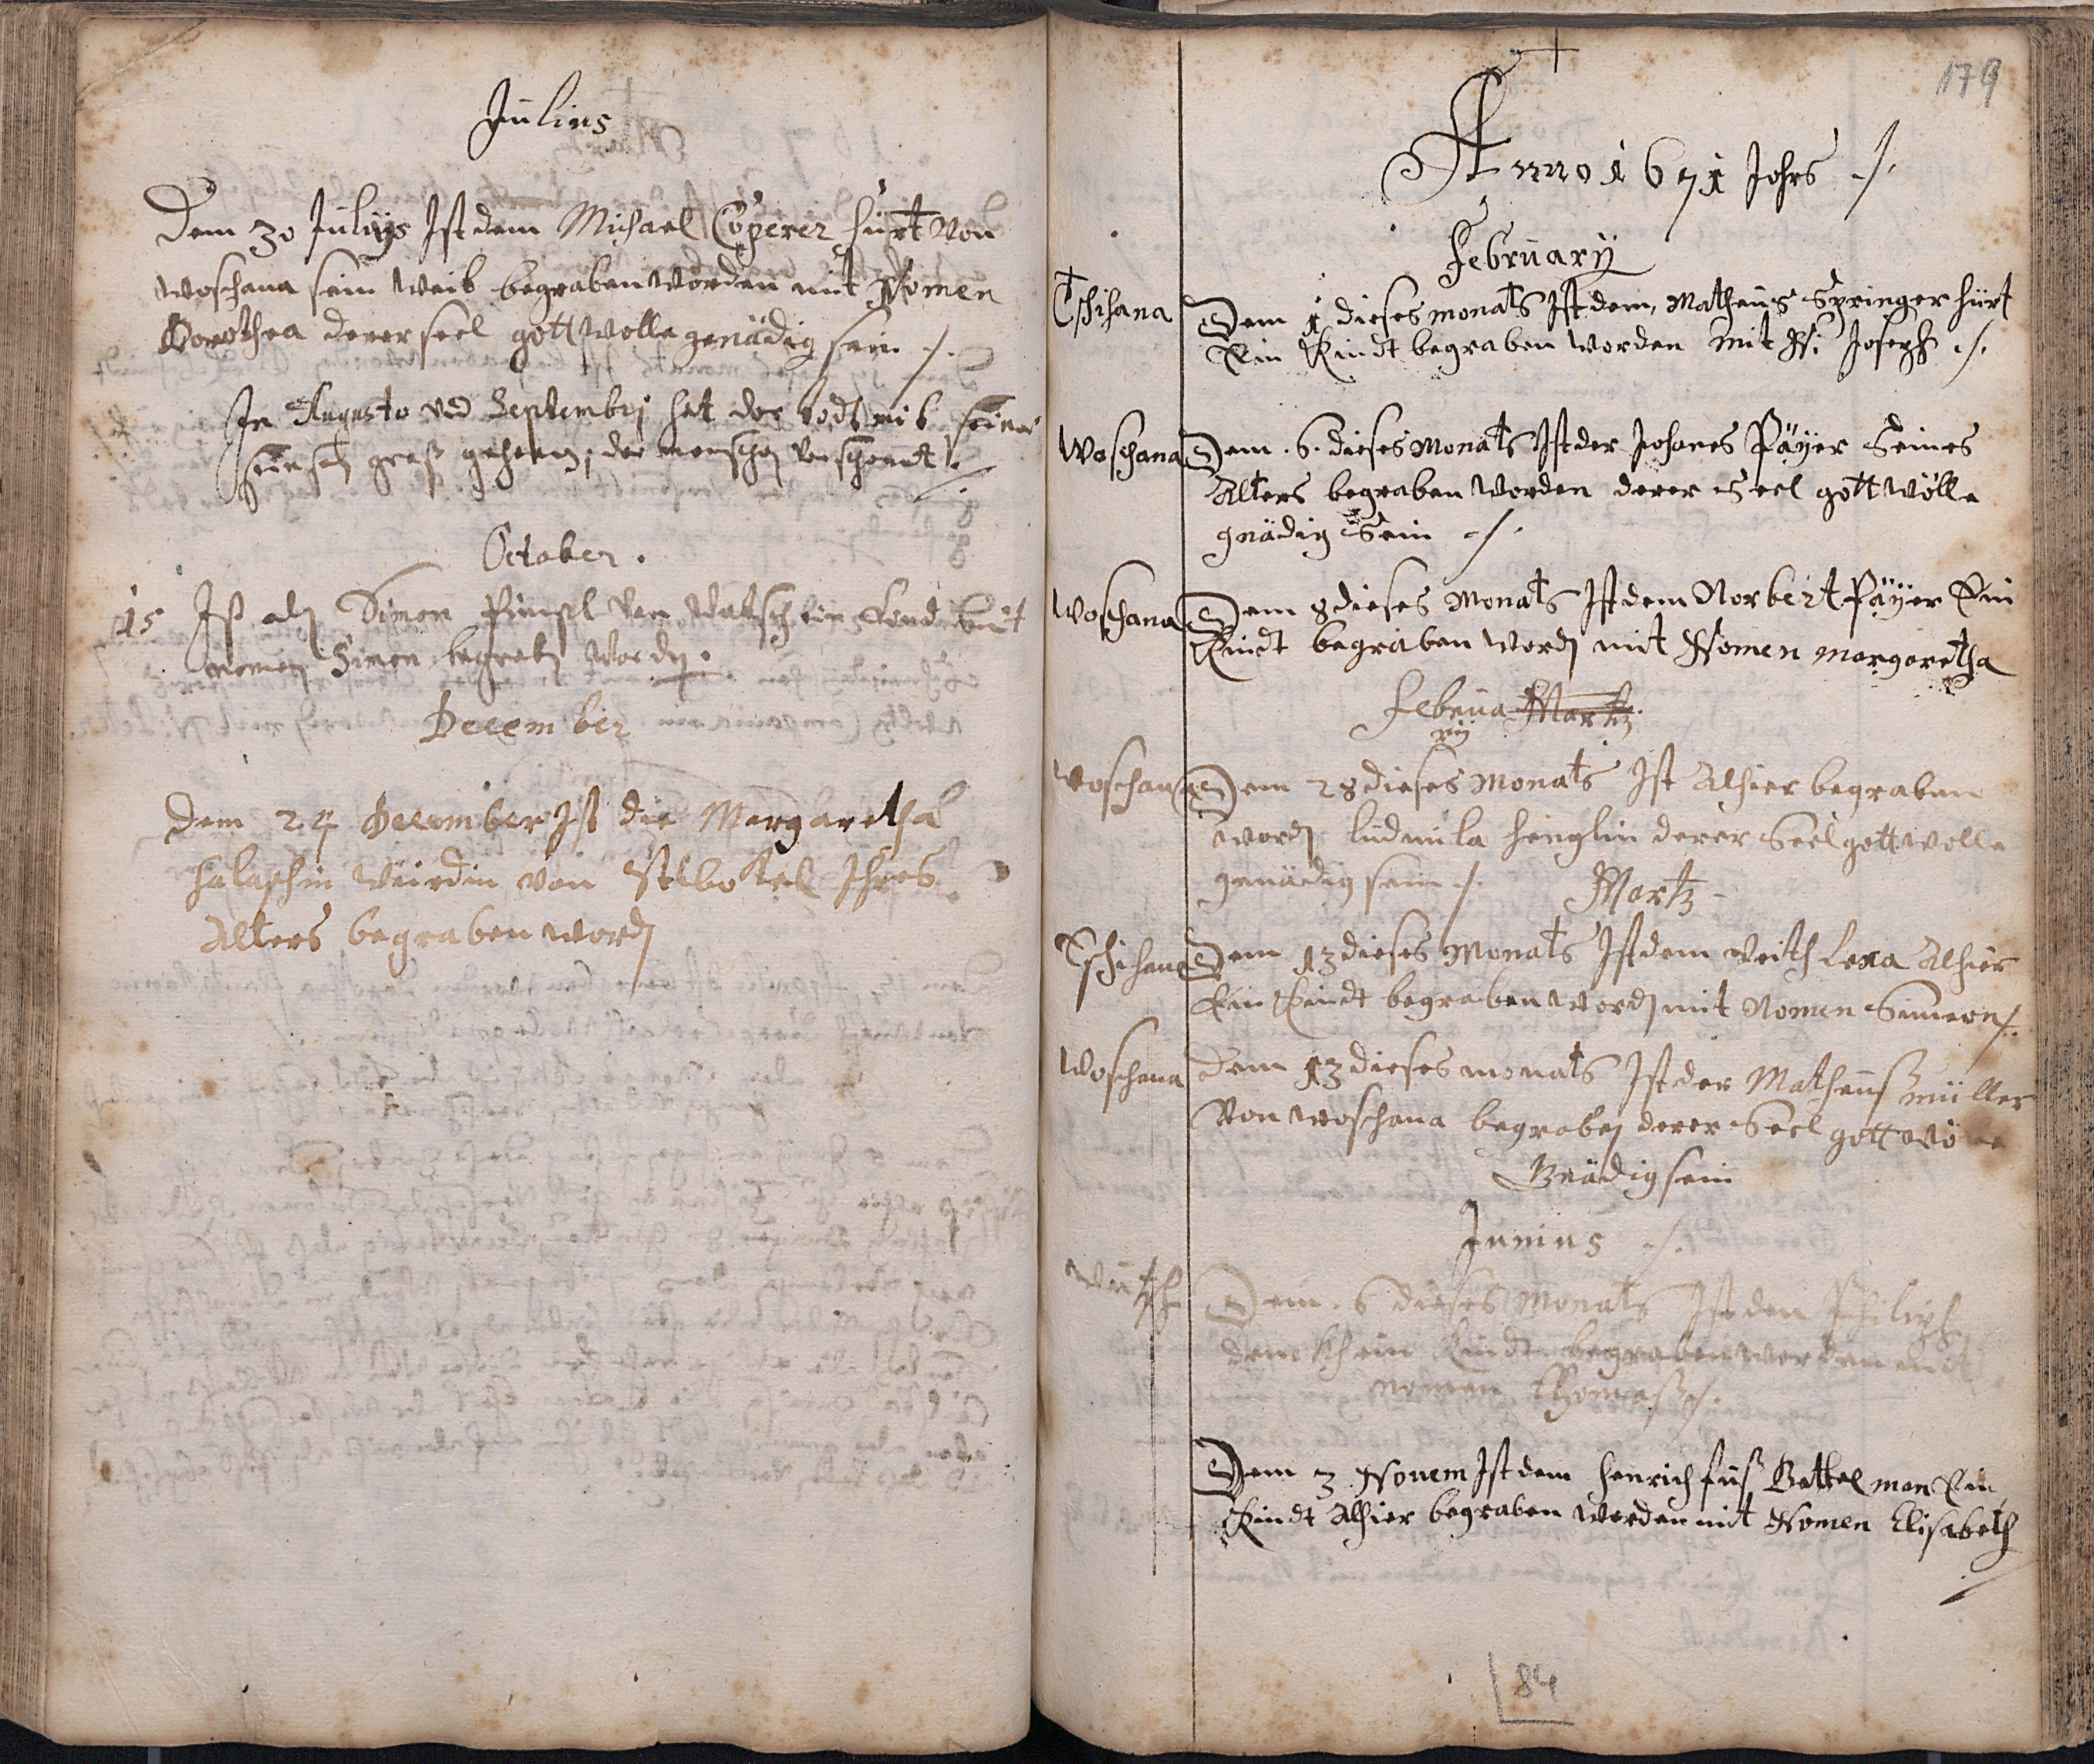 Julius
Dem 30 Julÿs Ist dem Michael Cöperer hürt von
Woschana sein Weib begraben worden mit Nomen
Dorothea derer seel gott wolle genädig sein ./.
In Augusto vnd Septembrj hat der todt mit seiner
der menschen verschondt ./.
October.
15 Ist dem Simon Pimpl von Watsch ein Kind mit
nomen Simon begraben worden.
December
Dem 24 December Ist die Margaretha
Würdin von Ihres
Alters begraben word
179
Anno 1671 Johrs ./.
Februarÿ
Tschihana Dem 1 dieses monats Ist dem, Matheus Springer hürt
Ein Kindt begraben worden mit N: Joseph ./.
Woschana Dem .6. dieses Monats Ist der Johanes Päÿer Seines
Alters begraben worden derer Seel gott wölle
gnädig Sein ./.
Woschana Dem 8 dieses Monats Ist dem Norbert Päÿer Ein
Kindt begraben word mit Nomen Margaretha
Februa Martz
rÿ
Woschana Dem 28 dieses Monats Ist Alhier begraben
word Ludmila henglin derer Seel gott wolle
genädig sein ./.
Martz
Tschihana Dem 13 dieses Monats Ist dem Veith Lexa Alhier
Ein Kindt begraben word mit Nomen Simeon ./.
Woschana Dem 13 dieses monats Ist der Matheuß müller
Von Woschana begraben derer Seel gott wölle
Gnädig sein
Junius ./.
Watsch Dem .6 dieses Monats Ist den Philiph
ein Kindt begraben worden mit
nomen Thomaß ./.
Dem 3 Novem Ist dem Henrich fuß Bettel man Ein
Kindt Alhier begraben worden mit Nomen Elisabeth
84